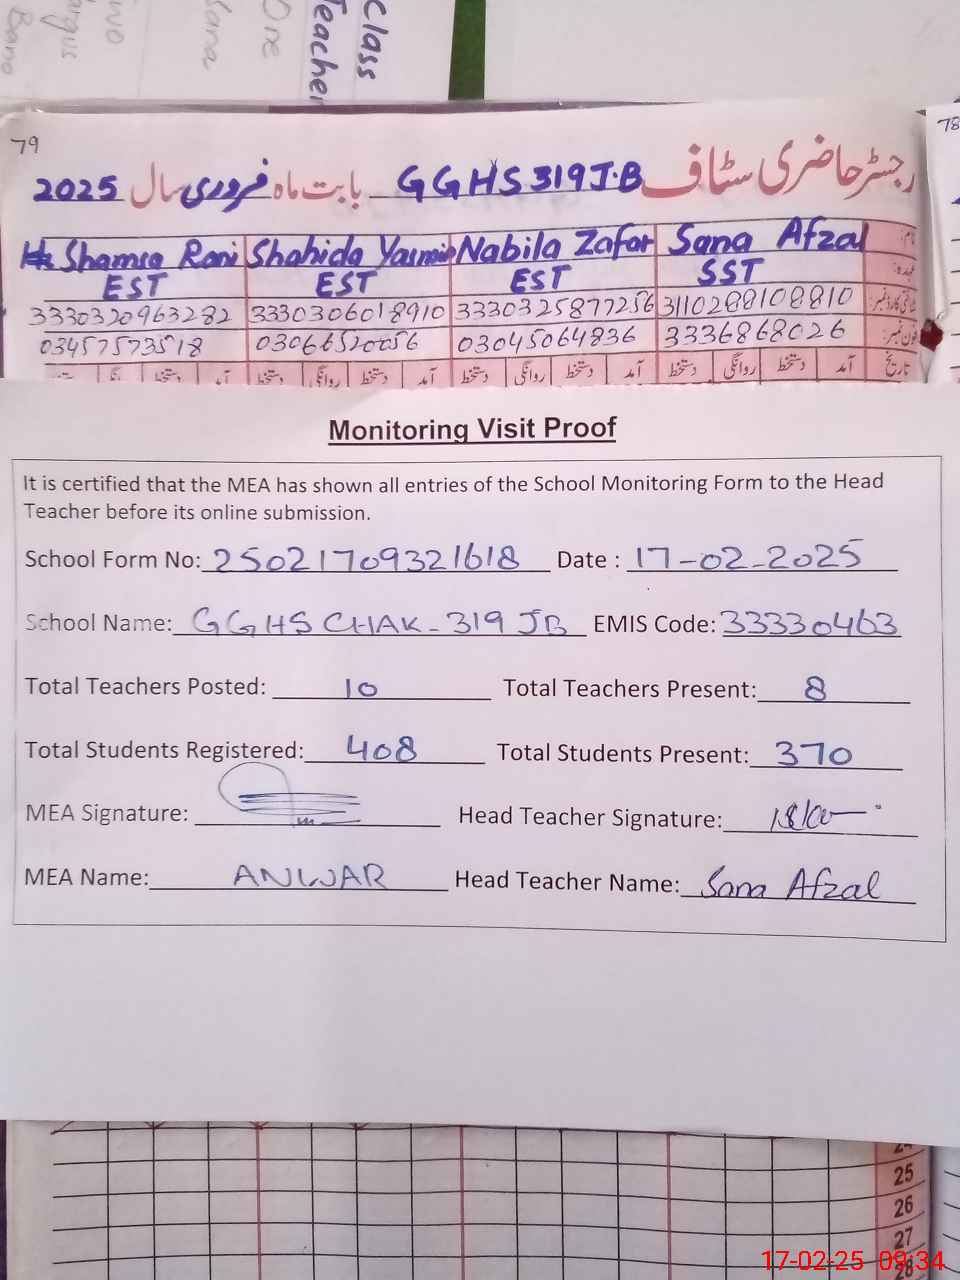 Class
Teacher
One
Sana
Bano
79
78
رجسٹر حاضری سٹاف GGHS 319 J.B بابت ماہ فروری سال 2025
Shamsa Rani Shahida Yasmin Nabila Zafar Sana Afzal نام:
EST EST EST SST عہدہ:
3330320963282 3330306018910 3330325877256 3110288108810 شناختی کارڈ نمبر:
03457573518 03066520056 03045064836 3336868026 فون نمبر:
دستخط آمد دستخط روانگی دستخط آمد دستخط روانگی دستخط آمد دستخط روانگی دستخط آمد تاریخ
Monitoring Visit Proof
It is certified that the MEA has shown all entries of the School Monitoring Form to the Head
Teacher before its online submission.
School Form No: 25021709321618 Date : 17-02-2025
School Name: GGHS CHAK-319 JB EMIS Code: 33330463
Total Teachers Posted: 10 Total Teachers Present: 8
Total Students Registered: 408 Total Students Present: 370
MEA Signature: Head Teacher Signature:
MEA Name: ANWAR Head Teacher Name: Sana Afzal
24
25
26
27
28
17-02-25 09:34